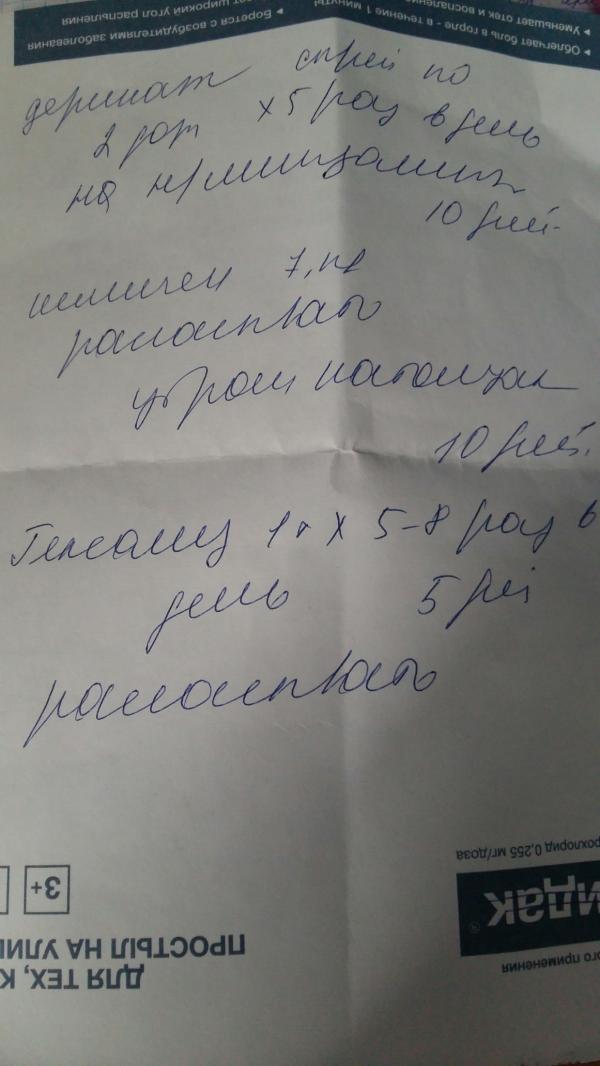 деринат спрей по
2 доз х 5 раз в день
на миндалины
10 дней.
рассасывать
утром натощак
10 дней.
1т х 5-8 раз в
день 5 дней
рассасывать
Облегчает боль в горле - в течение 1 минуты
Уменьшает отек и
Борется с возбудителями заболевания
широкий угол распыления
рохлорид 0,255 мг/доза
идак®
ого применения
3+
ДЛЯ ТЕХ, К
ПРОСТЫЛ НА УЛИ